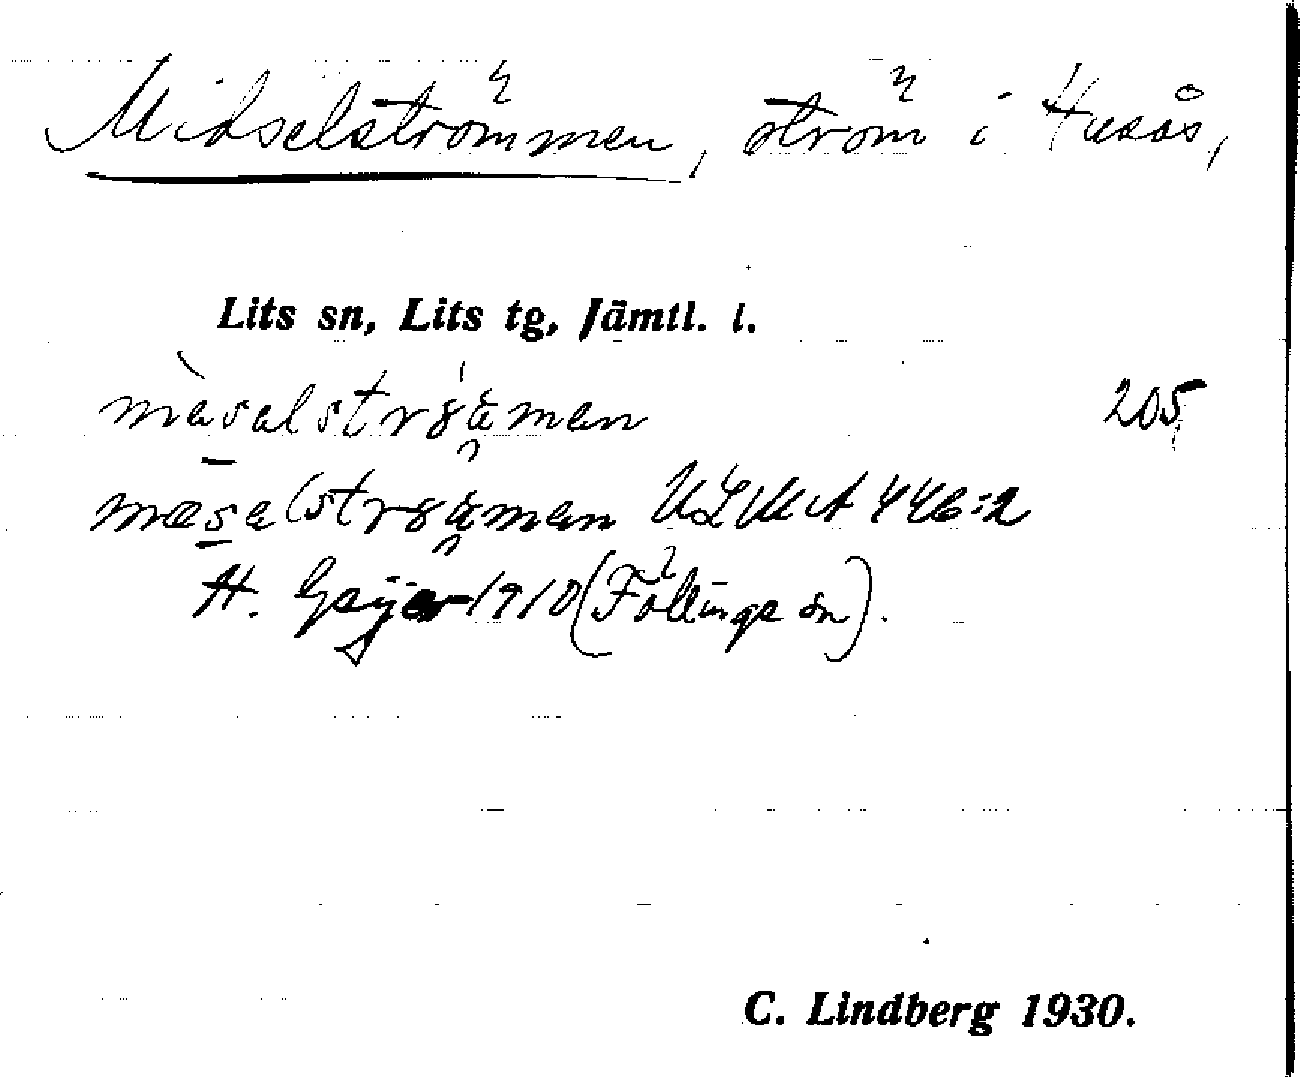 Midselströmmen, ström i Husås,
Lits sn, Lits tg, Jämtl. l.
205
ULMA 446:2
H. Geijer 1910 (Föllinge sn).
C. Lindberg 1930.